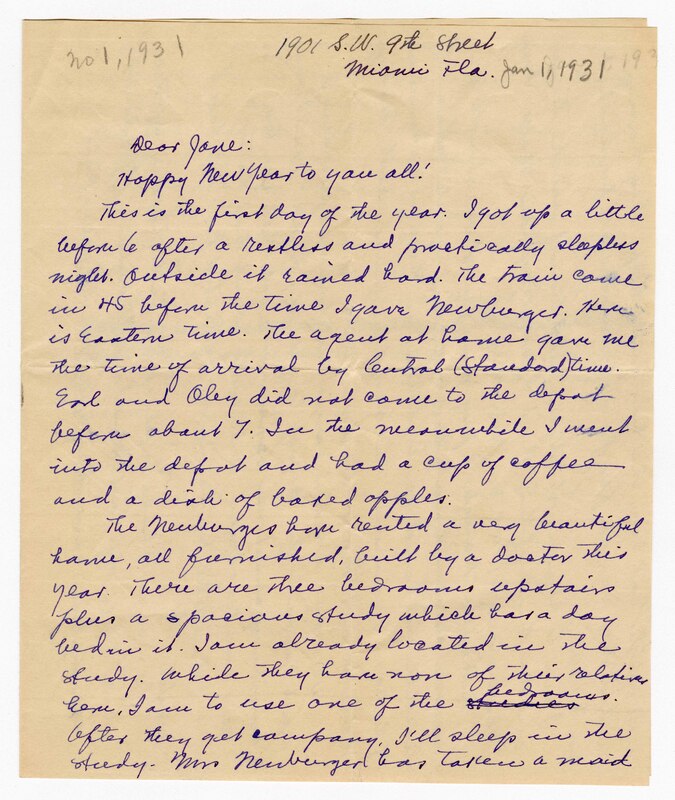 no 1, 1931
1901 S.W. 9th Street
Miami Fla. Jan 1, 1931 193
Dear Jane:
Happy New Year to you all!
This is the first day of the year. I got up a little
before 6 after a restless and practically sleepless
night. Outside it rained hard. The train came
in 45 before the time I gave Newburger. Here
is Eastern time. The agent at home gave me
the time of arrival by Central (Standard) time.
Earl and Oley did not come to the depot
before about 7. In the meanwhile I went
into the depot and had a cup of coffee
and a dish of baked apples.
The Neuburges have rented a very beautiful
home, all furnished, built by a doctor this
year. There are three bedrooms upstairs
plus a spacious study which has a day
bed in it. I am already located in the
study. While they have non of their relatives
here, I am to use one of the studies bedrooms.
After they get company, I'll sleep in the
study. Mrs Neuburger has taken a maid